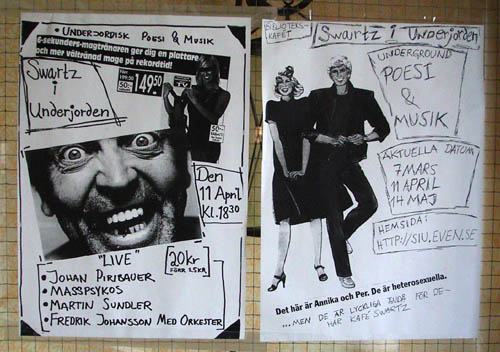 • UNDERJORDISK POESI & MUSIK
6-sekunders-magtränaren ger dig en plattare
och mer vältränad mage på rekordtid!
50%
149.50
50%
Swartz
i
Underjorden
Den
11 April
Kl. 18.30
"LIVE"
20kr
FÖRR 25KR
• JOHAN PIRIBAUER
• MASSPSYKOS
• MARTIN SUNDLER
• FREDRIK JOHANSSON MED ORKESTER
BIBLIOTEKS-
KAFÉT
Swartz i Underjorden
UNDERGROUND
POESI
&
MUSIK
AKTUELLA DATUM
7 MARS
11 APRIL
14 MAJ
HEMSIDA:
HTTP://SIU.EVEN.SE
Det här är Annika och Per. De är heterosexuella.
...MEN DE ÄR LYCKLIGA ÄNDÅ FÖR DE
HAR KAFÉ SWARTZ